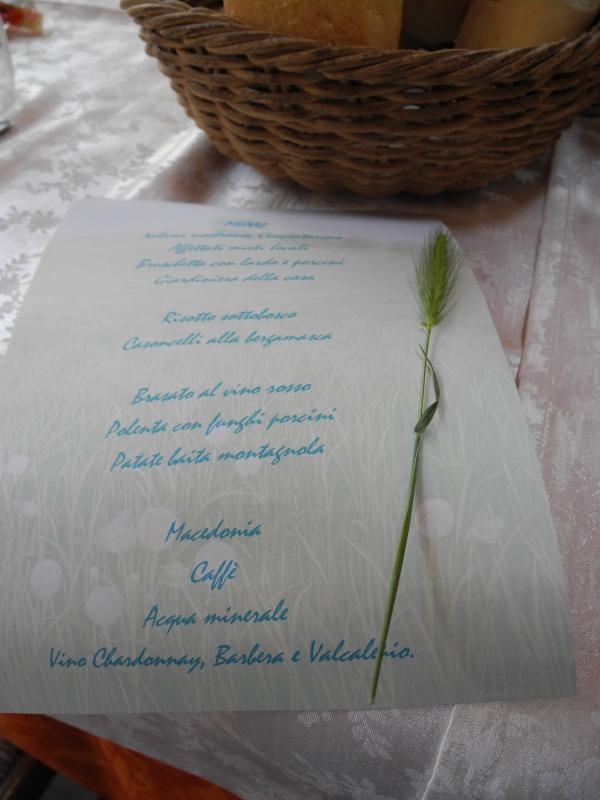 MENU
Salame nostrano, Cacciatorino
Affettati misti locali
Bruschetta con lardo e porcini
Giardiniera della casa
Risotto sottobosco
Casoncelli alla bergamasca
Brasato al vino rosso
Polenta con funghi porcini
Patate baita montagnola
Macedonia
Caffè
Acqua minerale
Vino Chardonnay, Barbera e Valcalepio.